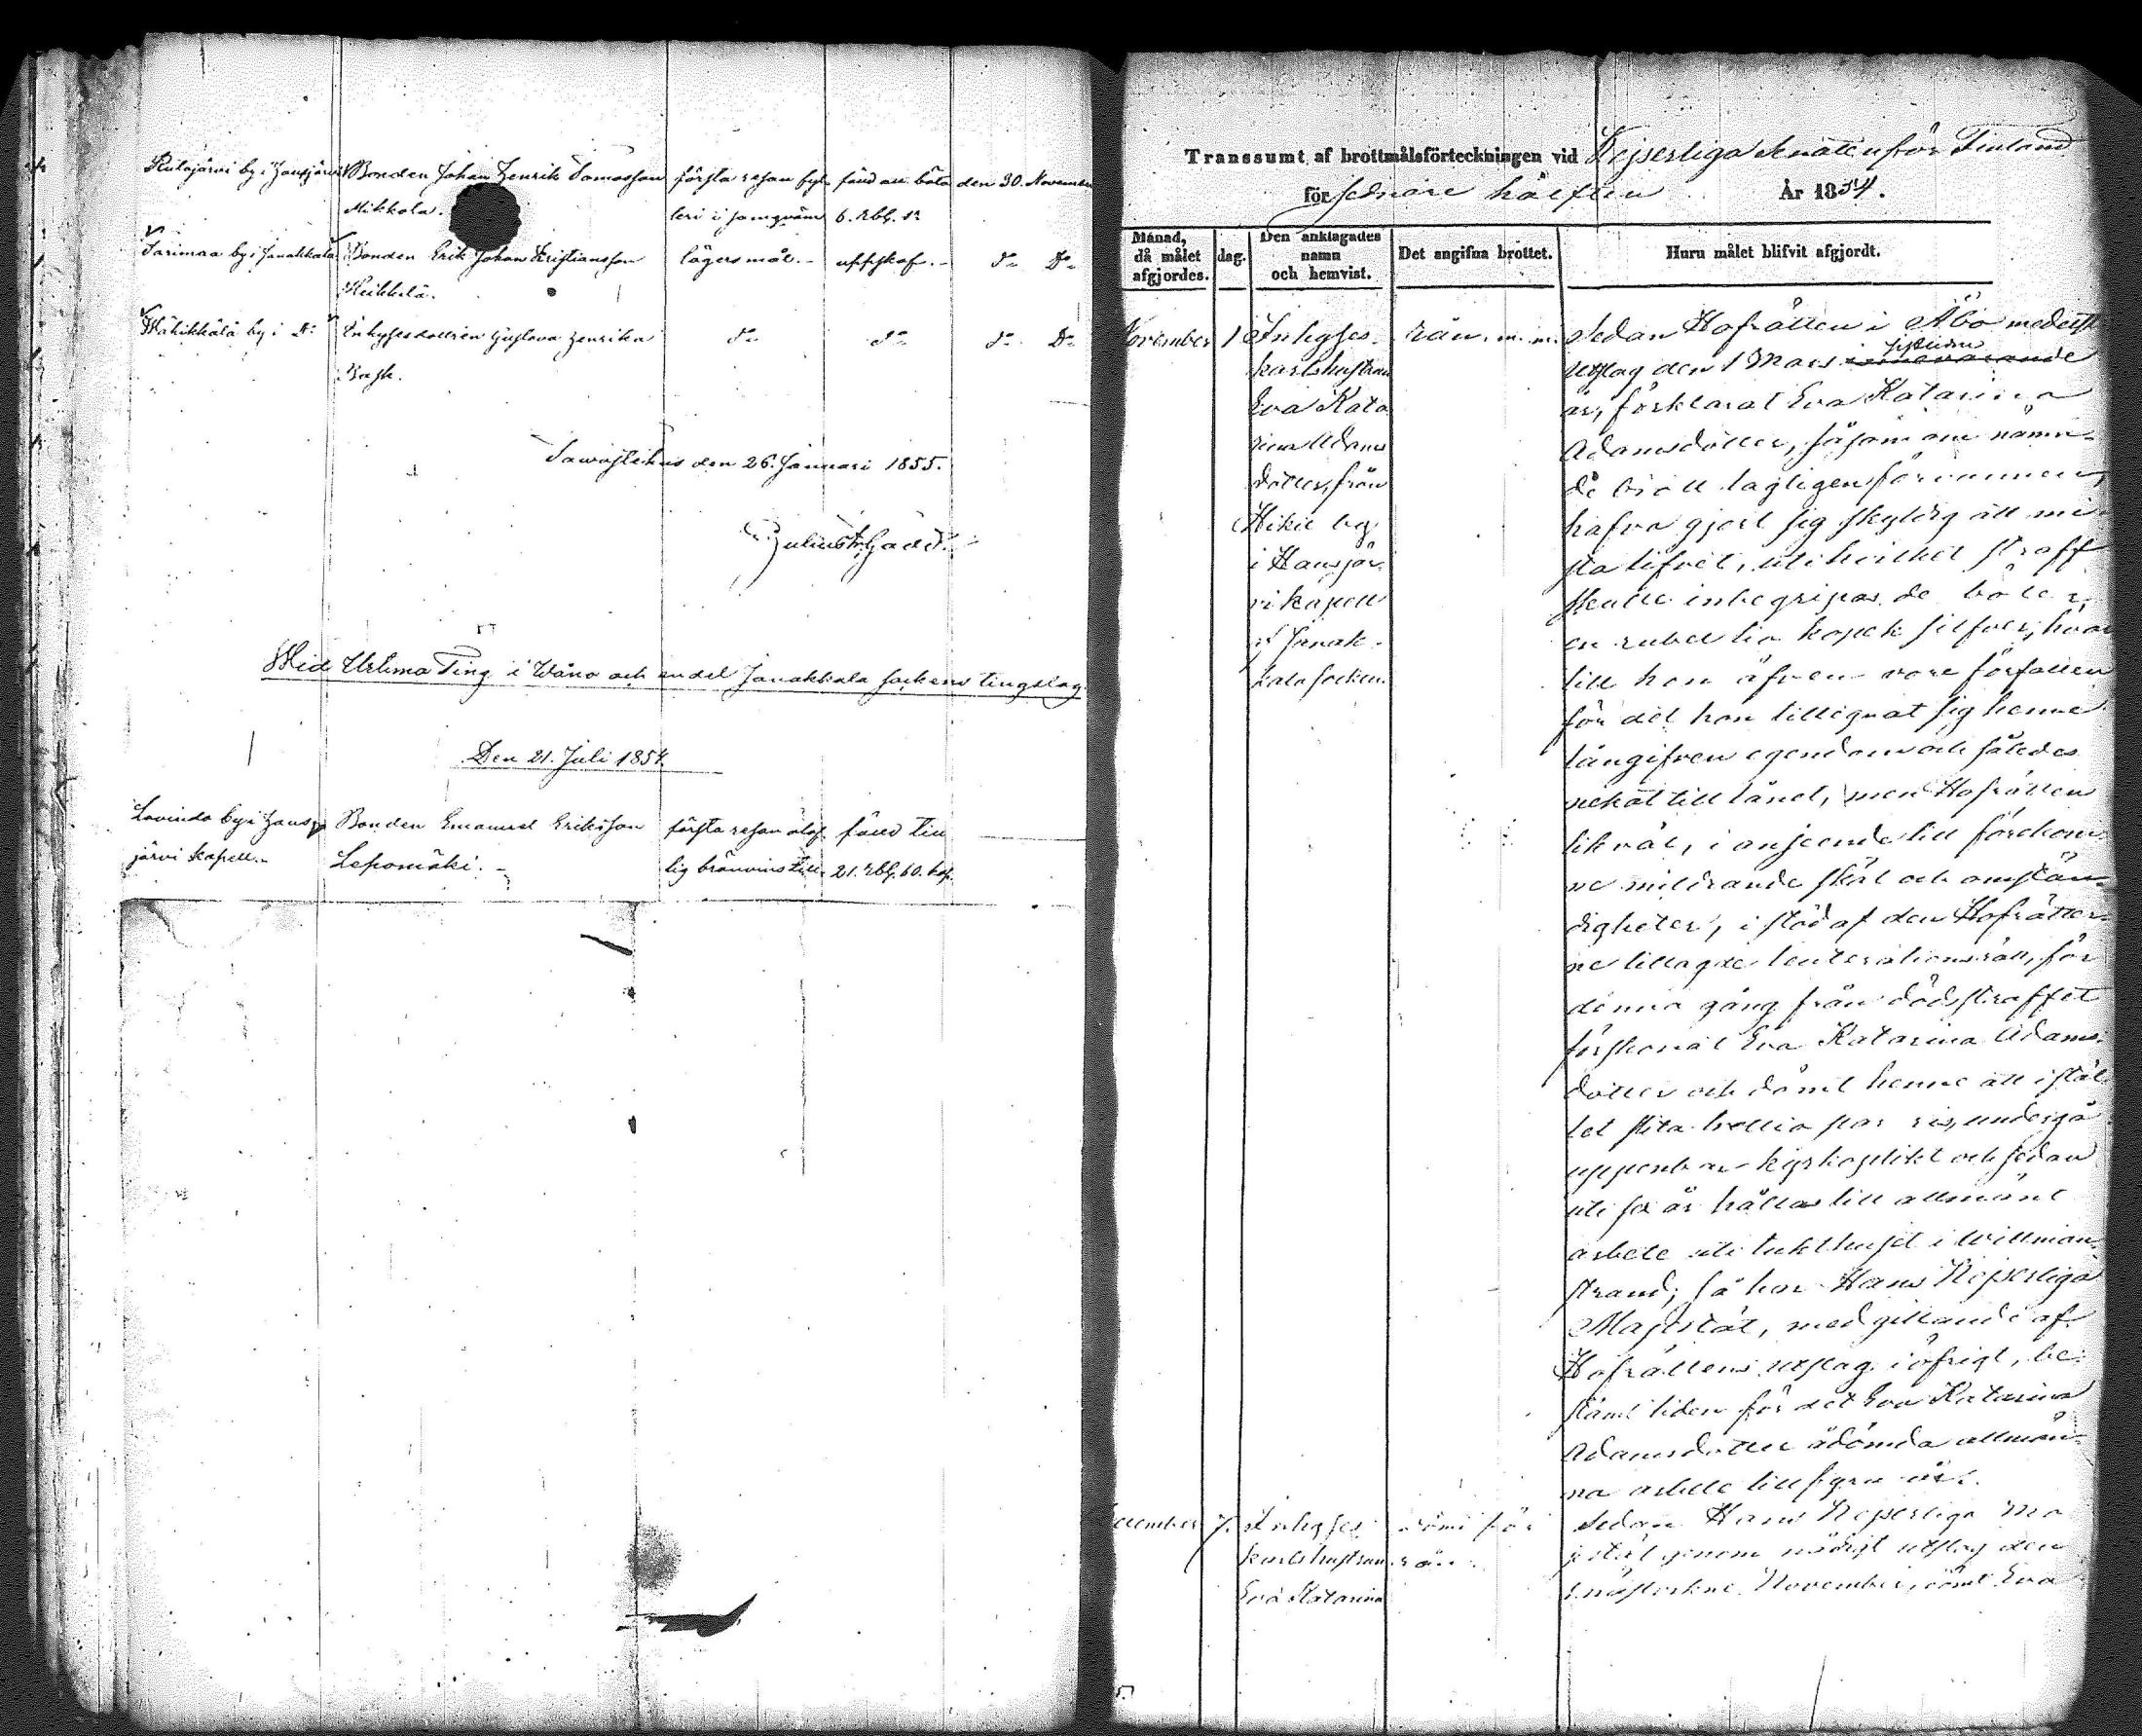 Bonden Johan Henrik Tomasson första resan fyl- fäld att böta den 30. November
Mikkola. leri i samqväm 6. Rbl. Sr
Tarimaa by i Janakkala Bonden Erik Johan Kristiansson lägersmål.- uppskof.- do Do
Heikkilä.
Wähikkälä by i Do Inhysesdottren Gustava Henrika do do do Do
Bask.
Tawastehus den 26. Januari 1855.
Wid Urtima Ting i Wåno och en del Janakkala sockens tingslag.
Den 21. Juli 1854.
by i Haus- Bonden Emanuel Eriksson första resan olof- fäld till
järvi kapell.- Lepomäki.- lig bränvins till- 21. Rbl. 60. kop.
Transsumt af brottmålsförteckningen vid Kejserliga Senaten för Finland
för sednare hälften År 1854.
Månad, då målet afgjordes.
dag.
Den anklagades namn och hemvist.
Det angifna brottet.
Huru målet blifvit afgjordt.
November 1 Inhyses-
karlshustrun
Eva Kata-
rina Adams-
dotter, från
Hikiä by
i Hausjär-
vi kapell
af Janak-
kala socken.
rån m. m.
Sedan Hofrätten i Åbo medelst
sistliden
utslag den 1 Mars innevarande
år, förklarat Eva Katarina
Adamsdotter, såsom om nämn-
de brott lagligen förvunnen,
hafva gjort sig skyldig att mi-
sta lifvet, uti hvilket straff
skulle inbegripas de böter,
en rubel tio kopek silfver, hvar-
till hon äfven vore förfallen
för det hon tillegnat sig henne
långifven egendom och således
nekat till lånet, men Hofrätten
likväl, i anseende till förekom-
ne mildrande skäl och omstän-
digheter, i stöd af den Hofrätter-
ne tillagde leuterationsrätt, för
denna gång från dödsstraffet
förskonat Eva Katarina Adams-
dotter och dömt henne att i stäl-
let slita trettio par ris, undergå
uppenbar kyrkoplikt och sedan
uti sex år hållas till allmänt
arbete uti tukthuset i Willman-
strand; så har Hans Kejserliga
Majestät, med gillande af
Hofrättens utslag i öfrigt, be-
stämt tiden för det Eva Katarina
Adamsdotter ådömda allmän-
na arbete till fyra år.
December 7. Inhyses-
karlshustrun
Eva Katarina
dömd för
rån.
Sedan Hans Kejserliga Ma-
jestät genom nådigt utslag den
1 nästvikne November, dömt Eva